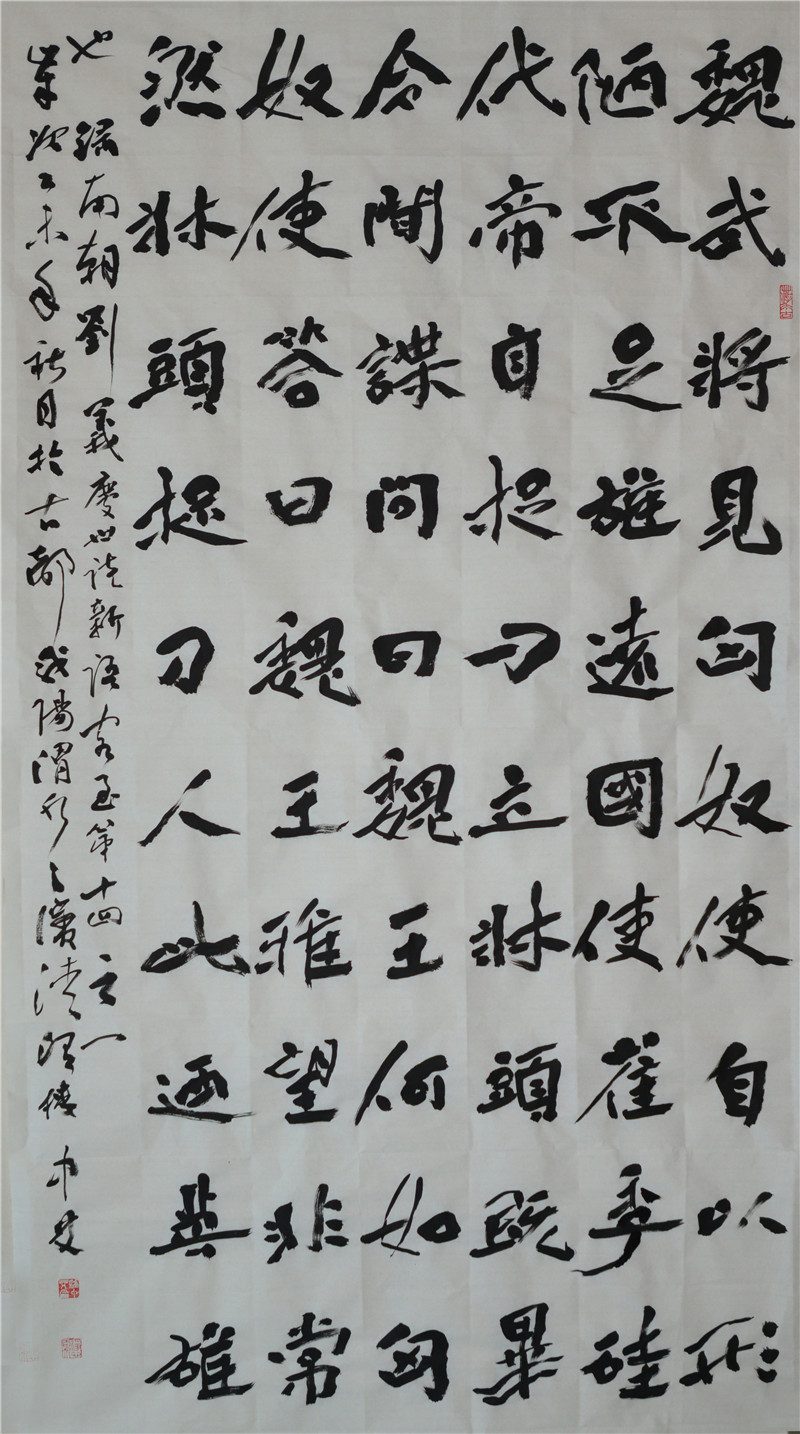 魏武將見匈奴使自以形
陋不足雄遠國使崔季珪
代帝自捉刀立牀頭既畢
令間諜問曰魏王何如匈
奴使答曰魏王雅望非常
然牀頭捉刀人此迺英雄
也 錄南朝劉義慶世說新語容止第十四之一
歲次乙未年秋月於古都咸陽渭水之濱